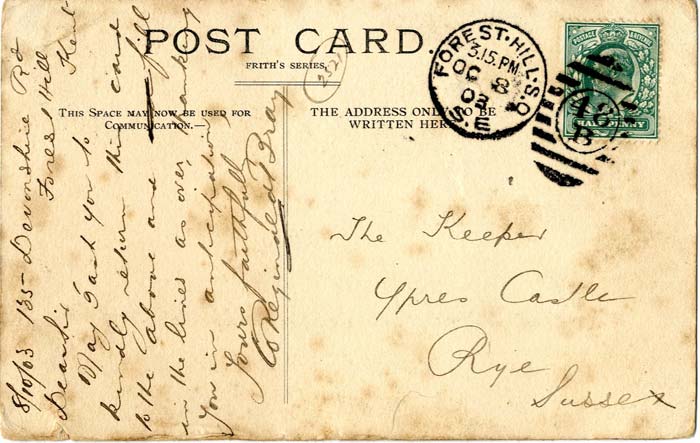 POST CARD.
FRITH'S SERIES.
2521
THIS SPACE MAY NOW BE USED FOR
COMMUNICATION.—
THE ADDRESS ONLY TO BE
WRITTEN HERE
FOREST·HILL·S.O
3.15.PM
OC 8
03
S.E
48
B
POSTAGE
HALF PENNY
8/10/03 135 Devonshire Rd
Forest Hill
Kent
Dear Sir
May I ask you to
kindly return this card
to the above and fill
in the lines as over, thanking
you in anticipation,
Yours faithfully
W Reginald Bray
The Keeper
Ypres Castle
Rye
Sussex